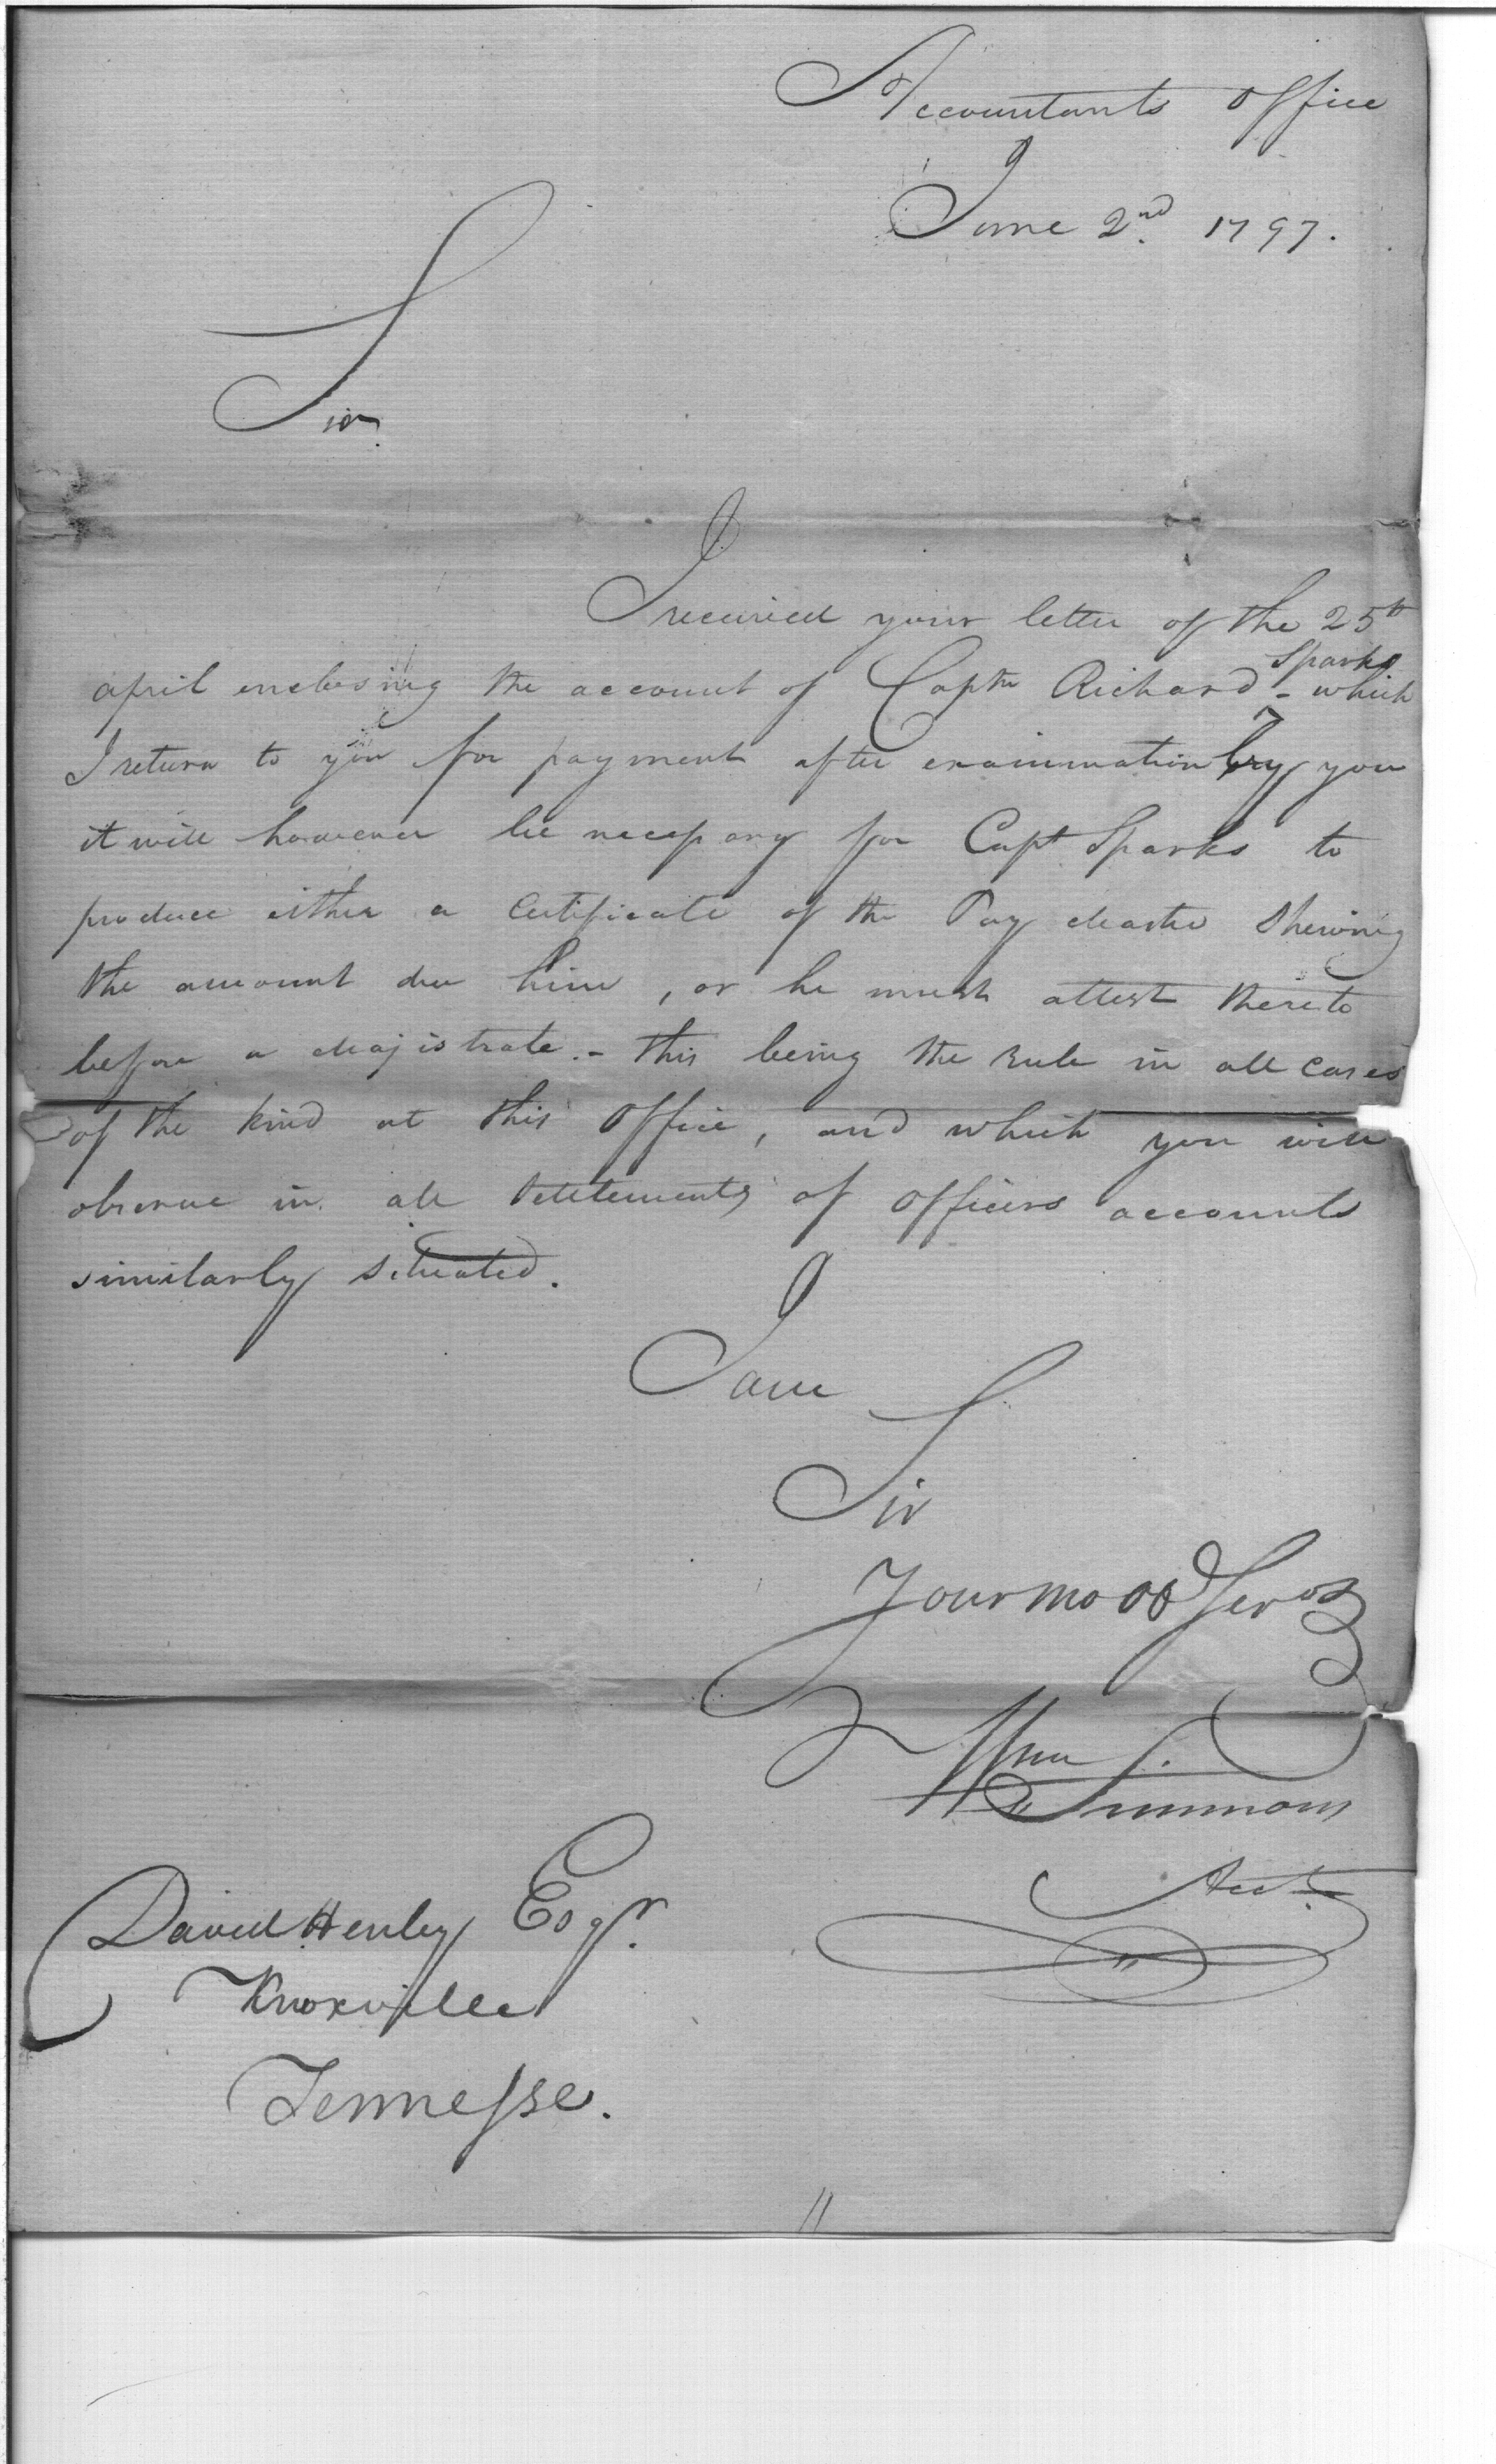 Accountants Office
June 2nd 1797.
Sir
I received your letter of the 25th
april enclosing the account of Captn Richard Sparks - which
I return to you for payment after examination by you
it will however be necessary for Capt Sparks to
produce either a Certificate of the Pay Master shewing
the amount due him, or he must attest thereto
before a Majistrate. - this being the rule in all cases
of the kind at this Office, and which you will
observe in all settlements of Officers accounts
similarly situated.
I am
Sir
Your mo ob Servt
Wm Simmons
Acct
David Henley Esqr.
Knoxville
Tennesse.